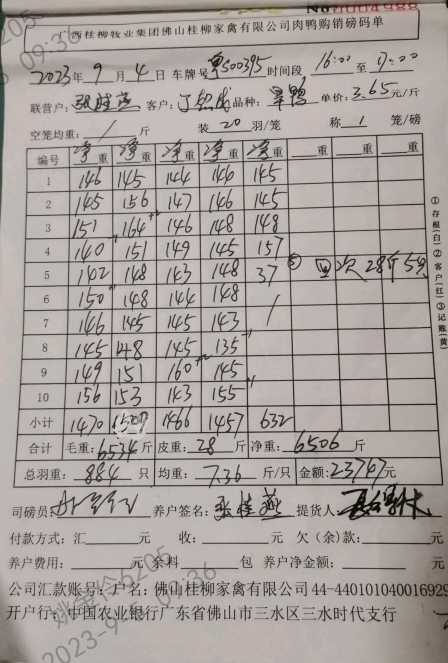 No 0004988
广西桂柳牧业集团佛山桂柳家禽有限公司肉鸭购销磅码单
2023年9月4日 车牌号 粤S00395 时间段 16:00 至 17:00
联营户: 张桂燕 客户: 品种: 旱鸭 单价: 3.65元/斤
空笼均重: / 斤 装 20 羽/笼 称 1 笼/磅
编号 净重 净重 净重 净重 净重 重 重 重
1 146 145 144 146 145
2 145 156 147 146 145
3 151 164 146 148 148
4 140 151 149 145 157
5 142 148 143 148 37 次28斤5只
6 150 148 144 148 /
7 146 145 145 143
8 145 148 145 135
9 149 151 160 145
10 156 153 143 155
小计 1470 1509 1466 1457 632
合计 毛重: 6534斤 皮重: 28斤 净重: 6506斤
总羽重: 884只 均重: 7.36斤/只 金额: 23747元
司磅员: 养户签名: 张桂燕 提货人:
付款方式: 汇 元 收: 元 欠(余)款: 元
养户费用: 元 余料 包 养户净金额: 元
公司汇款账号: 户名: 佛山桂柳家禽有限公司 44-440101040016929
开户行: 中国农业银行广东省佛山市三水区三水时代支行
①存根(白)②客户(红)③记账(黄)
6205
09:36
6205
2023-9-4 09:36